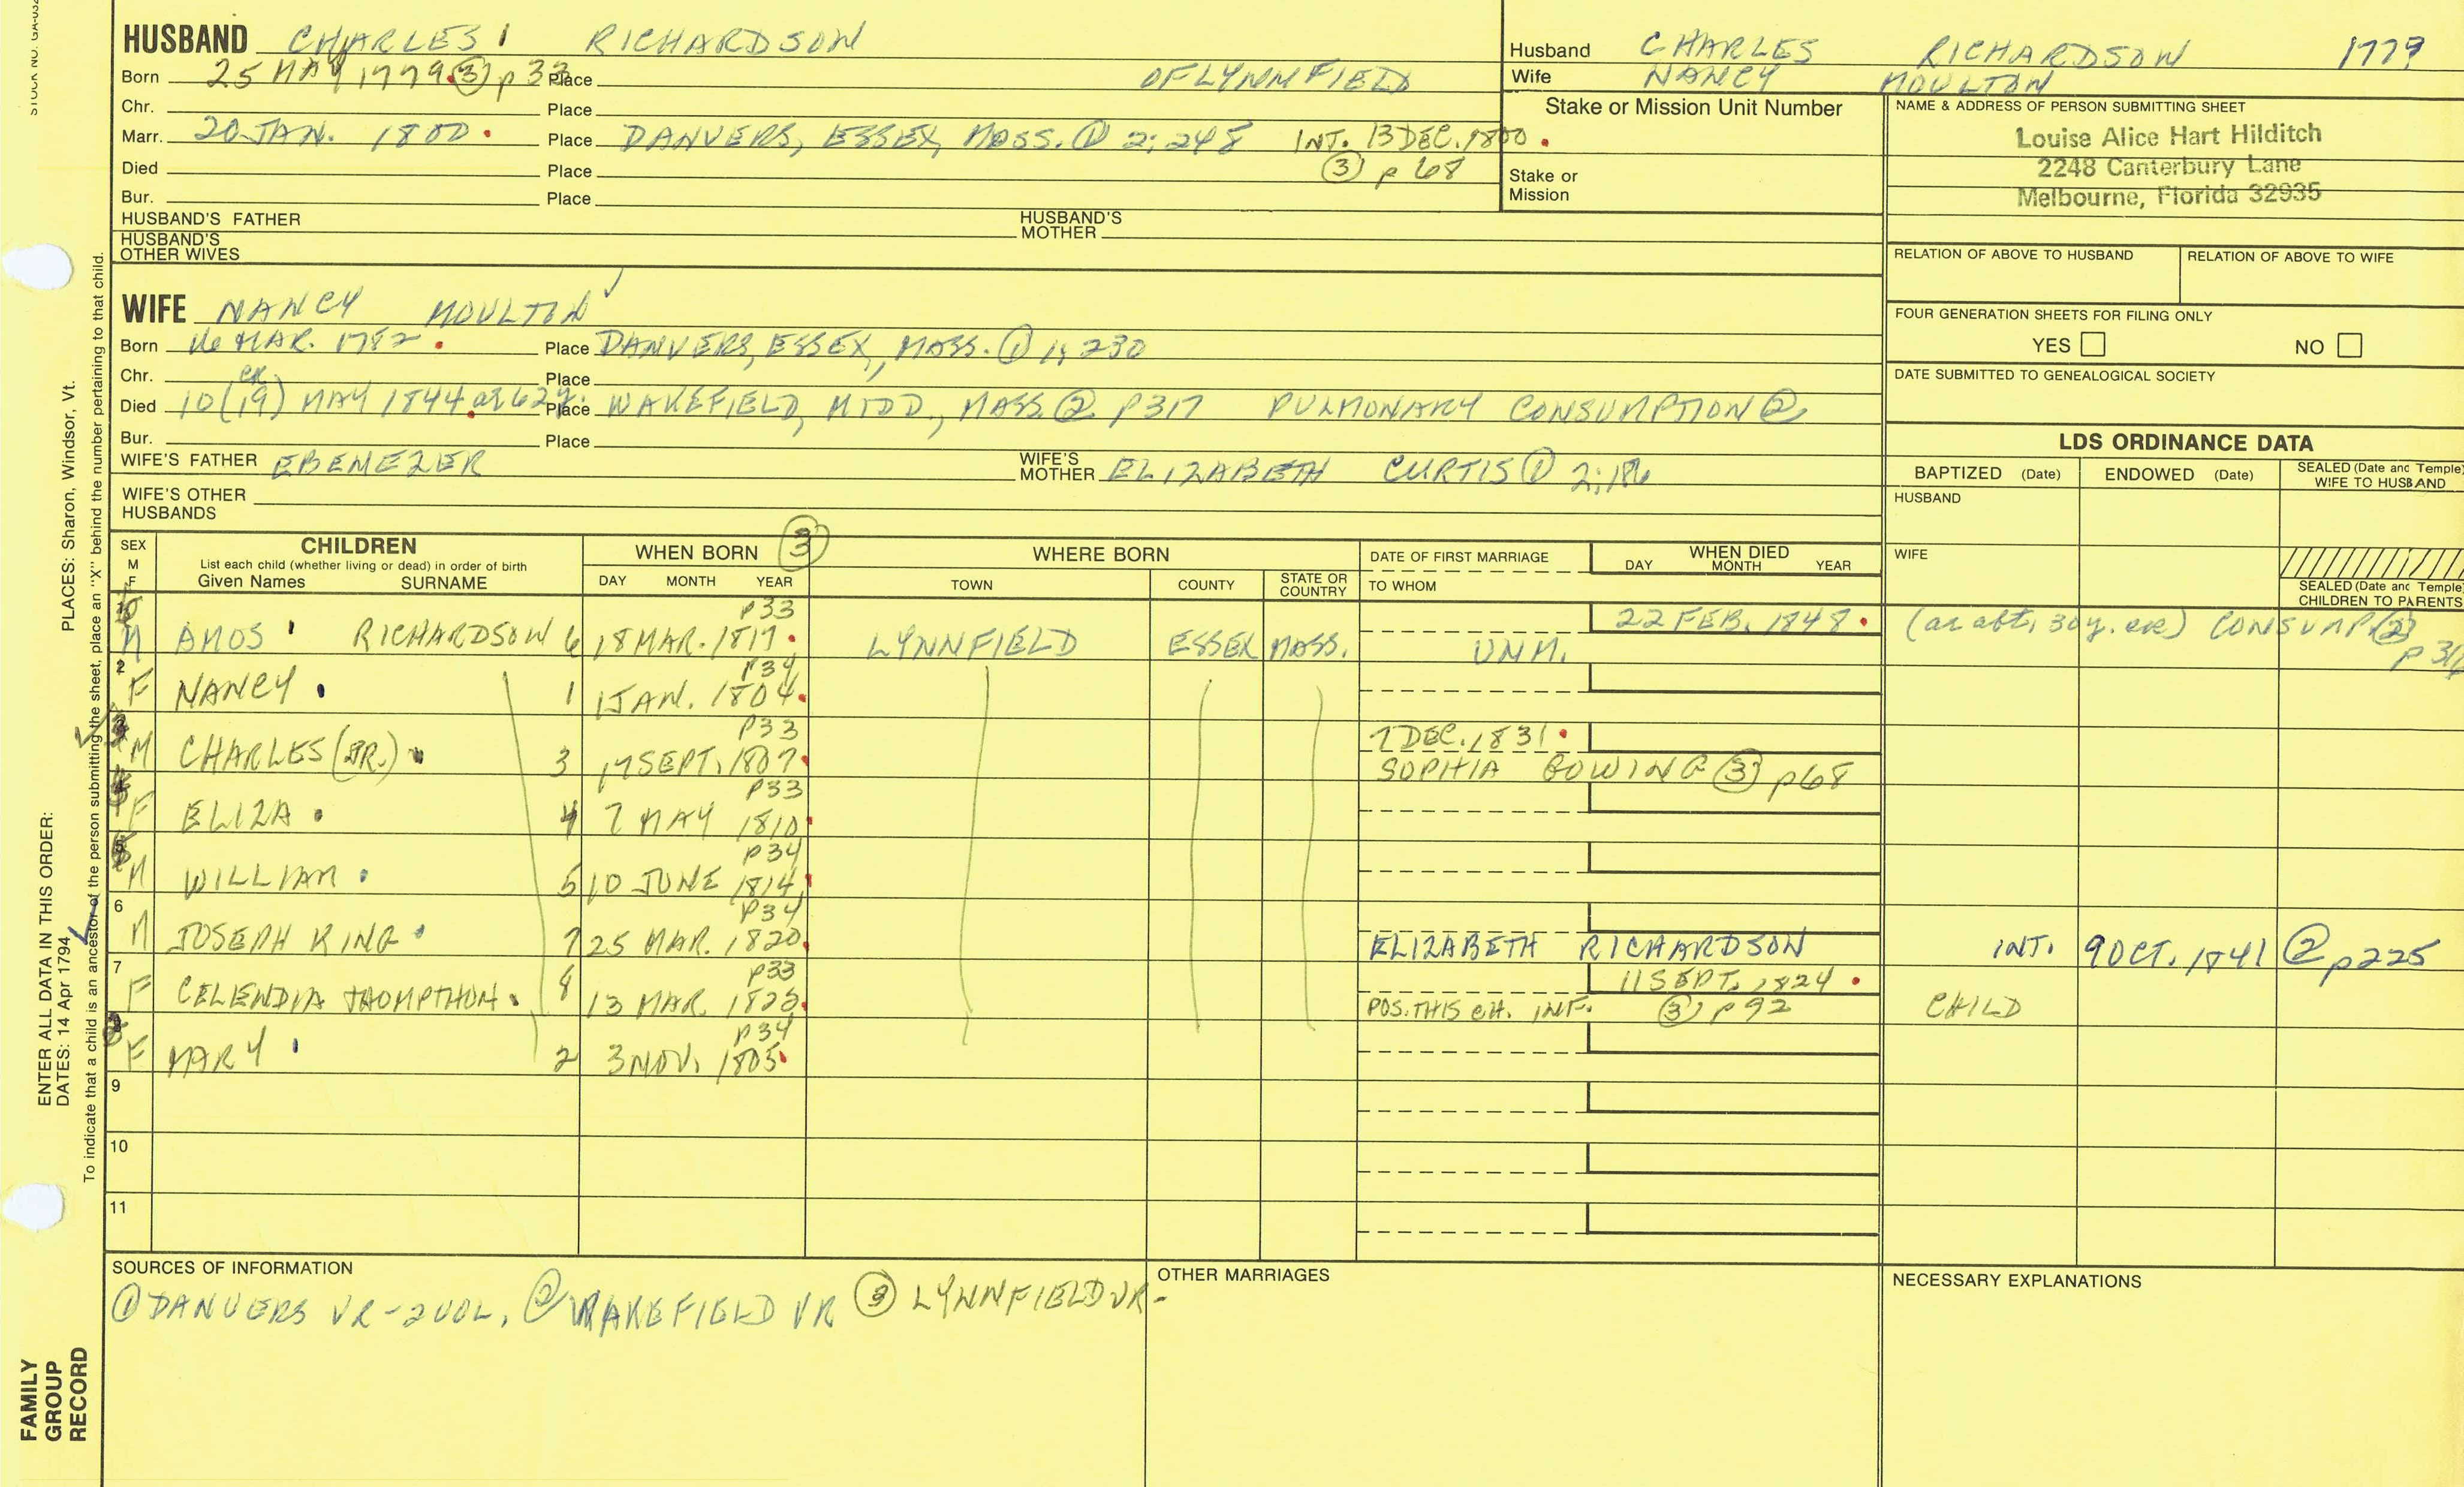 STOCK NO. GA-032
HUSBAND CHARLES RICHARDSON
Born 25 MAY 1779. ③ p 33 Place OF LYNNFIELD
Chr. Place
Marr. 20 JAN. 1800. Place DANVERS, ESSEX, MASS. ① 2:248 INT. 13 DEC. 1800.
Died Place ③ p 68
Bur. Place
HUSBAND'S FATHER HUSBAND'S MOTHER
HUSBAND'S OTHER WIVES
Husband CHARLES RICHARDSON 1779
Wife NANCY MOULTON
Stake or Mission Unit Number
Stake or Mission
NAME & ADDRESS OF PERSON SUBMITTING SHEET
Louise Alice Hart Hilditch
2248 Canterbury Lane
Melbourne, Florida 32935
RELATION OF ABOVE TO HUSBAND RELATION OF ABOVE TO WIFE
FOUR GENERATION SHEETS FOR FILING ONLY
YES NO
DATE SUBMITTED TO GENEALOGICAL SOCIETY
WIFE NANCY MOULTON ✓
Born 16 MAR. 1782. Place DANVERS, ESSEX, MASS. ① 1; 230
Chr. Place
Died 10 (19) MAY 1844. ae 62y. Place WAKEFIELD, MIDD., MASS ② P317 PULMONARY CONSUMPTION ②
Bur. Place
WIFE'S FATHER EBENEZER WIFE'S MOTHER ELIZABETH CURTIS ① 2:186
WIFE'S OTHER HUSBANDS
LDS ORDINANCE DATA
BAPTIZED (Date) ENDOWED (Date) SEALED (Date and Temple) WIFE TO HUSBAND
HUSBAND
WIFE
SEALED (Date and Temple) CHILDREN TO PARENTS
SEX M F CHILDREN WHEN BORN ③ WHERE BORN DATE OF FIRST MARRIAGE WHEN DIED
List each child (whether living or dead) in order of birth
Given Names SURNAME DAY MONTH YEAR TOWN COUNTY STATE OR COUNTRY TO WHOM DAY MONTH YEAR
P33
M AMOS RICHARDSON 6 18 MAR. 1817. LYNNFIELD ESSEX MASS. UNM. 22 FEB. 1848. (ae abt. 30 y.) CONSUMP. ② p 316
2 P34
F NANCY 1 1 JAN. 1804.
P33
M CHARLES (JR.) 3 17 SEPT. 1807. 7 DEC. 1831. SOPHIA GOWING ③ p68
P33
F ELIZA 4 7 MAY 1810.
P34
M WILLIAM 5 10 JUNE 1814.
6 P34
M JOSEPH KING 7 25 MAR. 1820. ELIZABETH RICHARDSON INT. 9 OCT. 1841 ② p225
7 P33
F CELENDIA THOMPTHON. 8 13 MAR. 11 SEPT. 1824. POS. THIS CH. INF. ③ p92 CHILD
P34
F MARY 2 3 NOV. 1805.
9
10
11
SOURCES OF INFORMATION
① DANVERS VR - 2 VOL, ② WAKEFIELD VR ③ LYNNFIELD VR-
OTHER MARRIAGES
NECESSARY EXPLANATIONS
PLACES: Sharon, Windsor, Vt.
ENTER ALL DATA IN THIS ORDER:
DATES: 14 Apr 1794
To indicate that a child is an ancestor of the person submitting the sheet, place an "X" behind the number pertaining to that child.
FAMILY
GROUP
RECORD